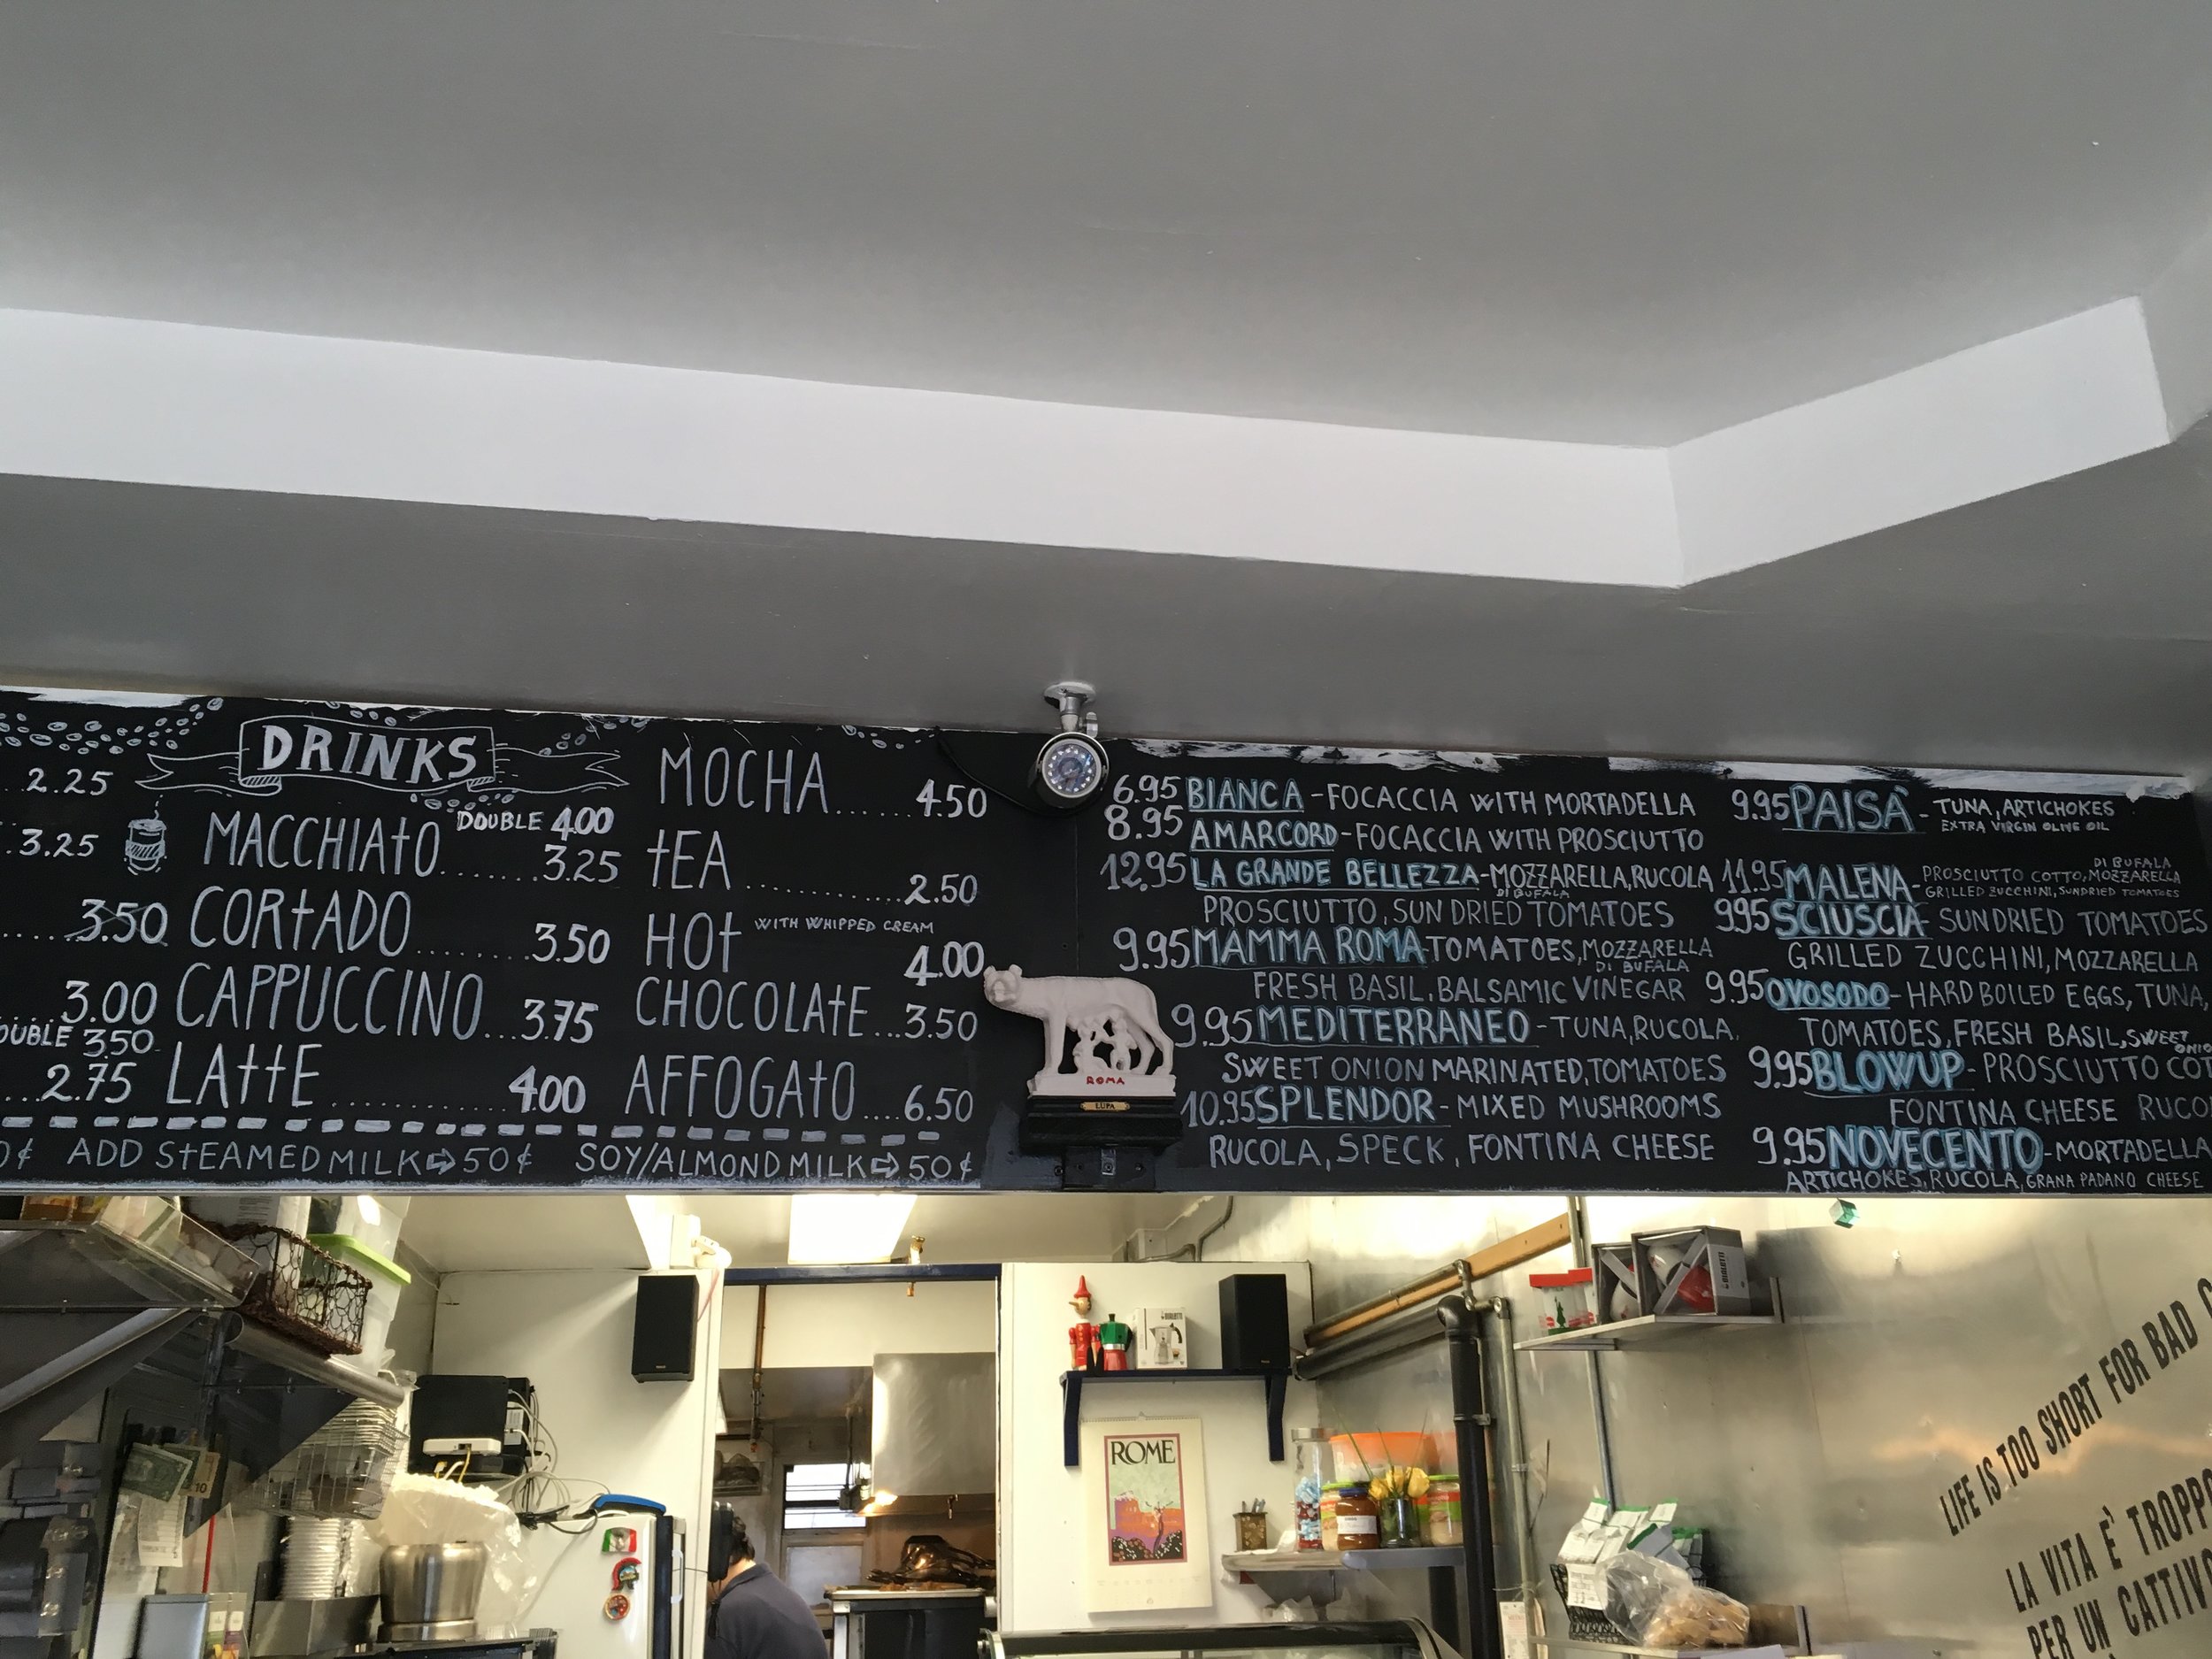 2.25
3.25
3.50
3.00
DOUBLE 3.50
2.75
DRINKS
DOUBLE 4.00
MACCHIATO 3.25
CORTADO 3.50
CAPPUCCINO 3.75
LATTE 4.00
MOCHA 4.50
TEA 2.50
HOT WITH WHIPPED CREAM 4.00
CHOCOLATE 3.50
AFFOGATO 6.50
0¢ ADD STEAMED MILK⇨50¢ SOY/ALMOND MILK⇨50¢
6.95 BIANCA - FOCACCIA WITH MORTADELLA
8.95 AMARCORD - FOCACCIA WITH PROSCIUTTO
12.95 LA GRANDE BELLEZZA - MOZZARELLA, RUCOLA
DI BUFALA
PROSCIUTTO, SUN DRIED TOMATOES
9.95 MAMMA ROMA - TOMATOES, MOZZARELLA
DI BUFALA
FRESH BASIL, BALSAMIC VINEGAR
9.95 MEDITERRANEO - TUNA, RUCOLA,
SWEET ONION MARINATED, TOMATOES
10.95 SPLENDOR - MIXED MUSHROOMS
RUCOLA, SPECK, FONTINA CHEESE
9.95 PAISÀ - TUNA, ARTICHOKES
EXTRA VIRGIN OLIVE OIL
DI BUFALA
11.95 MALENA - PROSCIUTTO COTTO, MOZZARELLA
GRILLED ZUCCHINI, SUNDRIED TOMATOES
9.95 SCIUSCIA - SUNDRIED TOMATOES
GRILLED ZUCCHINI, MOZZARELLA
9.95 OVOSODO - HARD BOILED EGGS, TUNA,
TOMATOES, FRESH BASIL, SWEET
ONIO
9.95 BLOWUP - PROSCIUTTO COT
FONTINA CHEESE RUCO
9.95 NOVECENTO - MORTADELLA
ARTICHOKES, RUCOLA, GRANA PADANO CHEESE
ROMA
LUPA
BIALETTI
BIALETTI
ROME
LIFE IS TOO SHORT FOR BAD
LA VITA È TROPP
PER UN CATTIV